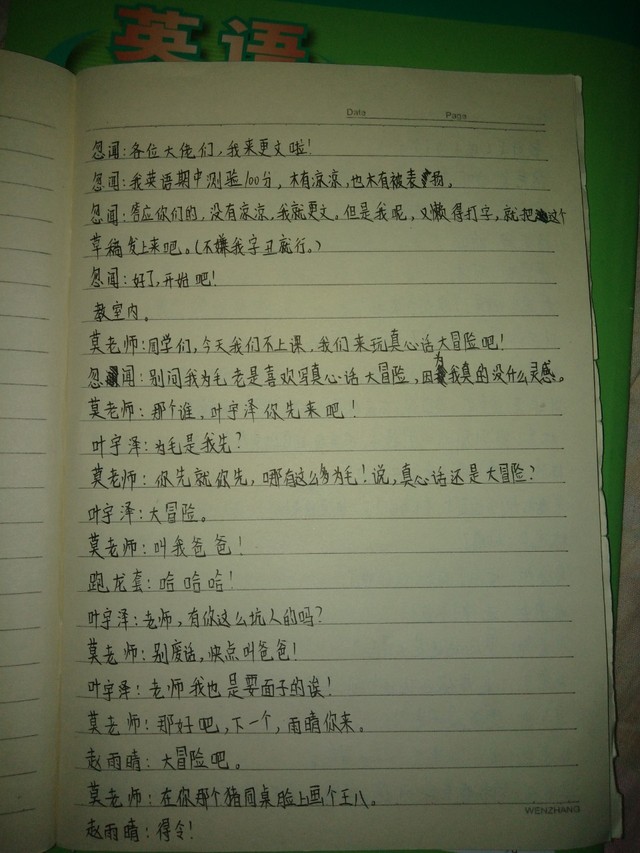 英语
Data Paga
忽闻:各位大佬们,我来更文啦!
忽闻:我英语期中测验100分,木有凉凉,也木有被表扬。
忽闻:答应你们的,没有凉凉,我就更文。但是我呢,又懒得打字,就把这个
草稿发上来吧。(不嫌我字丑就行。)
忽闻:好了,开始吧!
教室内。
莫老师:同学们,今天我们不上课,我们来玩真心话大冒险吧!
忽闻:别问我为毛老是喜欢写真心话大冒险,因为我真的没什么灵感。
莫老师:那个谁,叶宇泽你先来吧!
叶宇泽:为毛是我先?
莫老师:你先就你先,哪有这么多为毛!说,真心话还是大冒险?
叶宇泽:大冒险。
莫老师:叫我爸爸!
跑龙套:哈哈哈!
叶宇泽:老师,有你这么坑人的吗?
莫老师:别废话,快点叫爸爸!
叶宇泽:老师我也是要面子的诶!
莫老师:那好吧,下一个,雨晴你来。
赵雨晴:大冒险吧。
莫老师:在你那个猪同桌脸上画个王八。
WENZHANG
赵雨晴:得令!